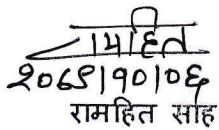 रामहित
२०७९।१०।०६
रामहित साह